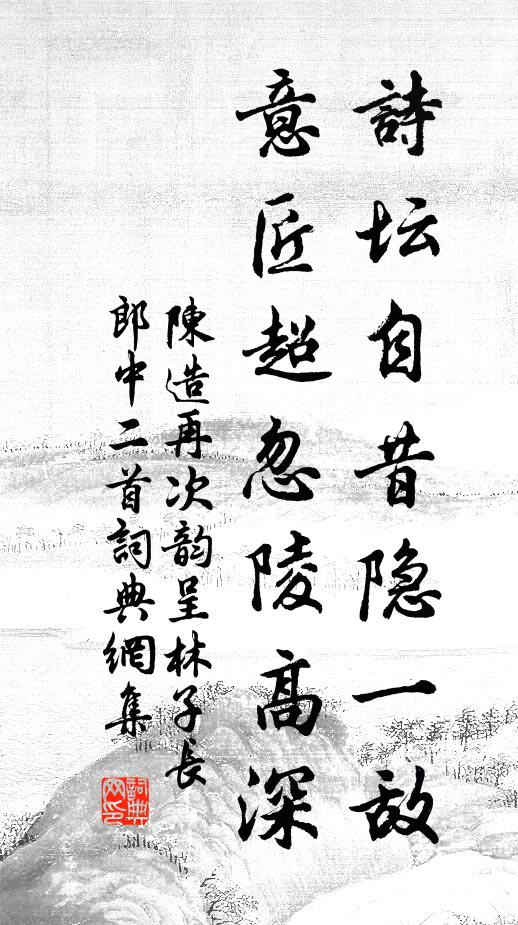 詩坛自昔隐一敌
意匠超忽陵高深
陳造再次韵呈林子長
郎中二首詞典網集
詞典网印